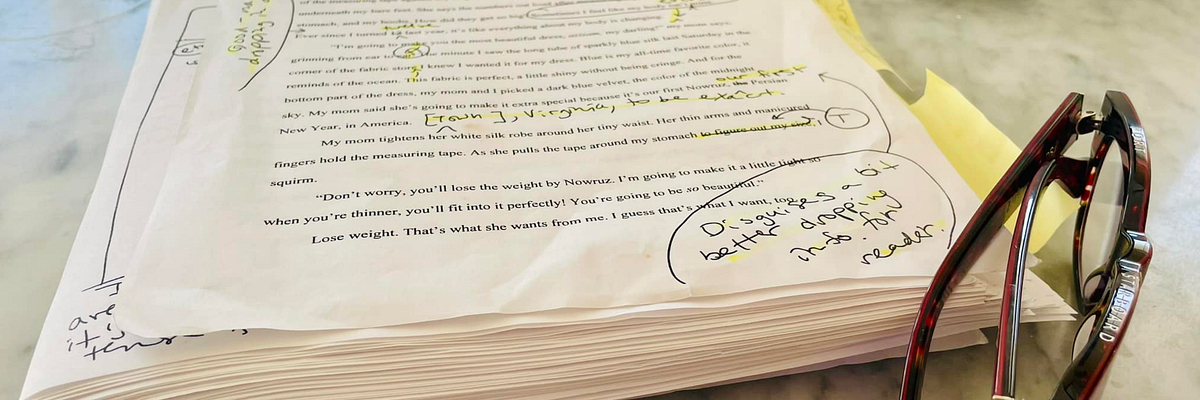 of the measuring tape
underneath my bare feet. She says the numbers out loud
stomach, and my boobs. How did they get so big I feel like my body
Ever since I turned 12 last year, it's like everything about my body is changing.
"I'm going to make you the most beautiful dress, azizam, my darling!" my mom says,
grinning from ear to ear. The minute I saw the long tube of sparkly blue silk last Saturday in the
corner of the fabric store I knew I wanted it for my dress. Blue is my all-time favorite color, it
reminds of the ocean. This fabric is perfect, a little shiny without being cringe. And for the
bottom part of the dress, my mom and I picked a dark blue velvet, the color of the midnight
our first
sky. My mom said she's going to make it extra special because it's our first Nowruz, the Persian
New Year, in America. [Town], Virginia, to be exact.
My mom tightens her white silk robe around her tiny waist. Her thin arms and manicured
fingers hold the measuring tape. As she pulls the tape around my stomach to figure out my size, I
T
squirm.
"Don't worry, you'll lose the weight by Nowruz. I'm going to make it a little tight so
when you're thinner, you'll fit into it perfectly! You're going to be so beautiful."
Lose weight. That's what she wants from me. I guess that's what I want, too.
Disguises a bit
better dropping
info for
reader.
are
it
tense
STARBOARD